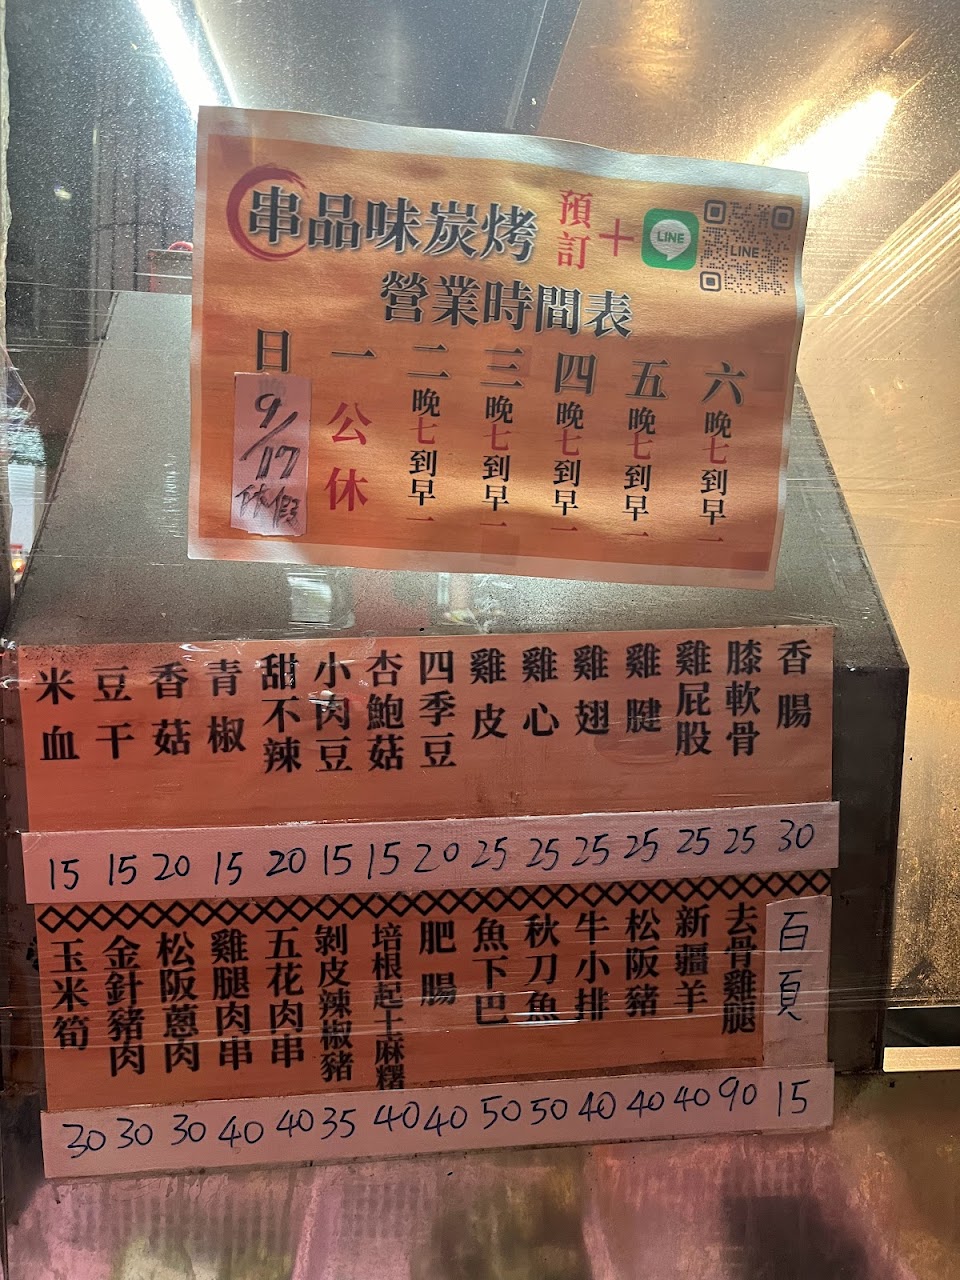 串品味炭烤 預訂+ LINE LINE
營業時間表
日 一 二 三 四 五 六
9/17休假 公休 晚七到早一 晚七到早一 晚七到早一 晚七到早一 晚七到早一
米血 豆干 香菇 青椒 甜不辣 小肉豆 杏鮑菇 四季豆 雞皮 雞心 雞翅 雞腱 雞屁股 膝軟骨 香腸
15 15 20 15 20 15 15 20 25 25 25 25 25 25 30
玉米筍 金針豬肉 松阪蔥肉 雞腿肉串 五花肉串 剝皮辣椒豬 培根起士麻糬 肥腸 魚下巴 秋刀魚 牛小排 松阪豬 新疆羊 去骨雞腿 百頁
30 30 30 40 40 35 40 40 50 50 40 40 40 90 15